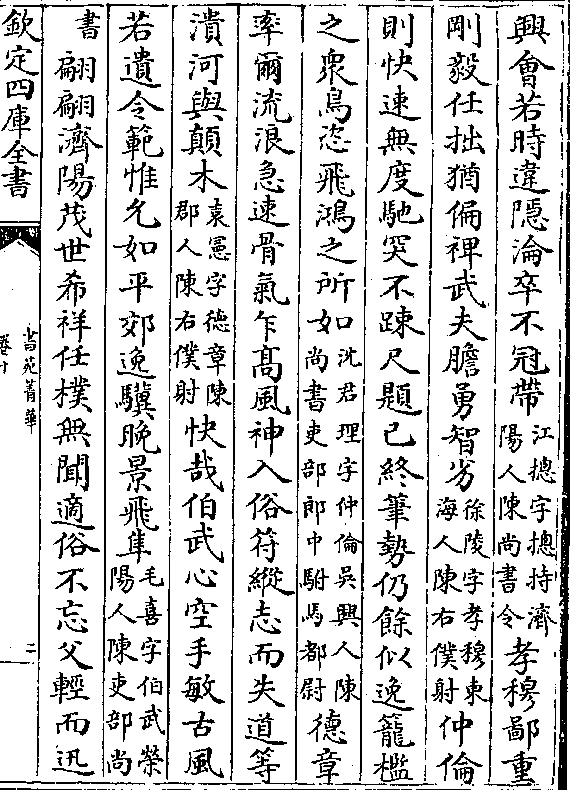 興會若時違隠淪卒不冠帶江摠字摠持濟陽人陳尚書令孝穆鄙重
剛毅任拙猶偏裨武夫膽勇智劣徐陵字孝穆東海人陳右僕射仲倫
則快速無度馳突不踈尺題已終筆勢仍餘似逸籠檻
之衆鳥恣飛鴻之所如沈君理字仲倫吳興人陳尚書吏部郎中駙馬都尉德章
率爾流浪急速骨氣乍髙風神入俗符縱志而失道等
潰河與顛木袁憲字德章陳郡人陳右僕射快哉伯武心空手敏古風
若遺令範惟允如平郊逸驥晩景飛隼毛喜字伯武榮陽人陳吏部尚
書翩翩濟陽茂世希祥任樸無聞適俗不忘父輕而迅
欽定四庫全書
書苑菁華
卷十
二